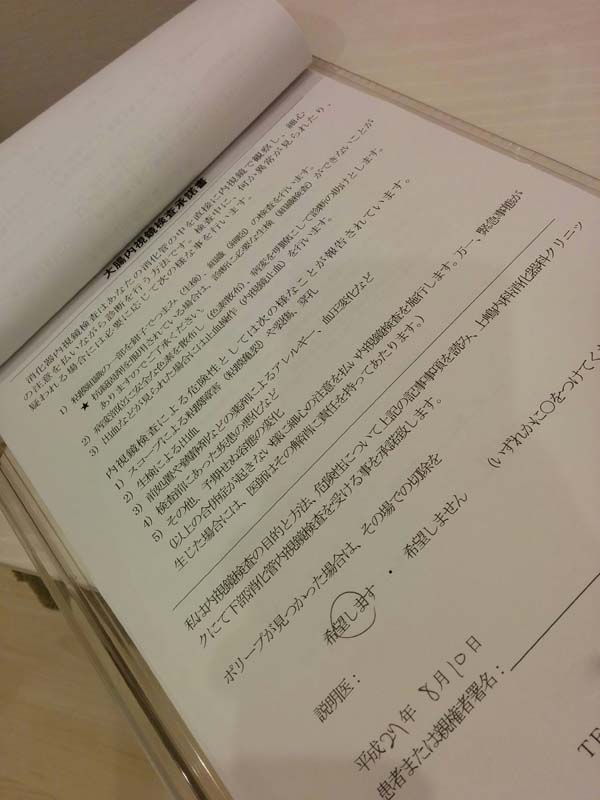 大腸内視鏡検査承諾書
消化器内視鏡検査はあなたの消化管の中を直接に内視鏡で観察し、細心
の注意を払いながら診断を行う方法です。検査中に、何か異常が見られたり、
疑われる場合には必要に応じて次の様な事を行います。
1) 粘膜組織の一部を鉗子でつまみ（生検）、組織（細胞）の検査を行います。
★ 抗凝固剤を服用されている場合は、診断に必要な生検（組織検査）ができないことが
ありますのでご了承ください。
2) 病変部位に安全な色素を散布し（色素散布）、病変を明瞭にして診断の助けとします。
3) 出血などが見られた場合には止血操作（内視鏡止血）を行います。
内視鏡検査による危険性としては次の様なことが報告されています。
1) スコープによる粘膜障害（粘膜亀裂）や裂傷、穿孔
2) 生検による出血
3) 前処置や鎮静剤などの薬剤によるアレルギー、血圧変化など
4) 検査前にあった疾患の悪化など
5) その他、予期せぬ容態の変化
（以上の合併症が起きない様に細心の注意を払い内視鏡検査を施行します。万一、緊急事態が
生じた場合には、医師はその解消に責任を持ってあたります。）
私は内視鏡検査の目的と方法、危険性について上記の記事事項を読み、上嶋内科消化器科クリニッ
クにて下部消化管内視鏡検査を受ける事を承諾致します。
ポリープが見つかった場合は、その場での切除を
（いずれかに○をつけてくだ
希望します ・ 希望しません
説明医：
平成29年 8月10日
患者または親権者署名：
TE